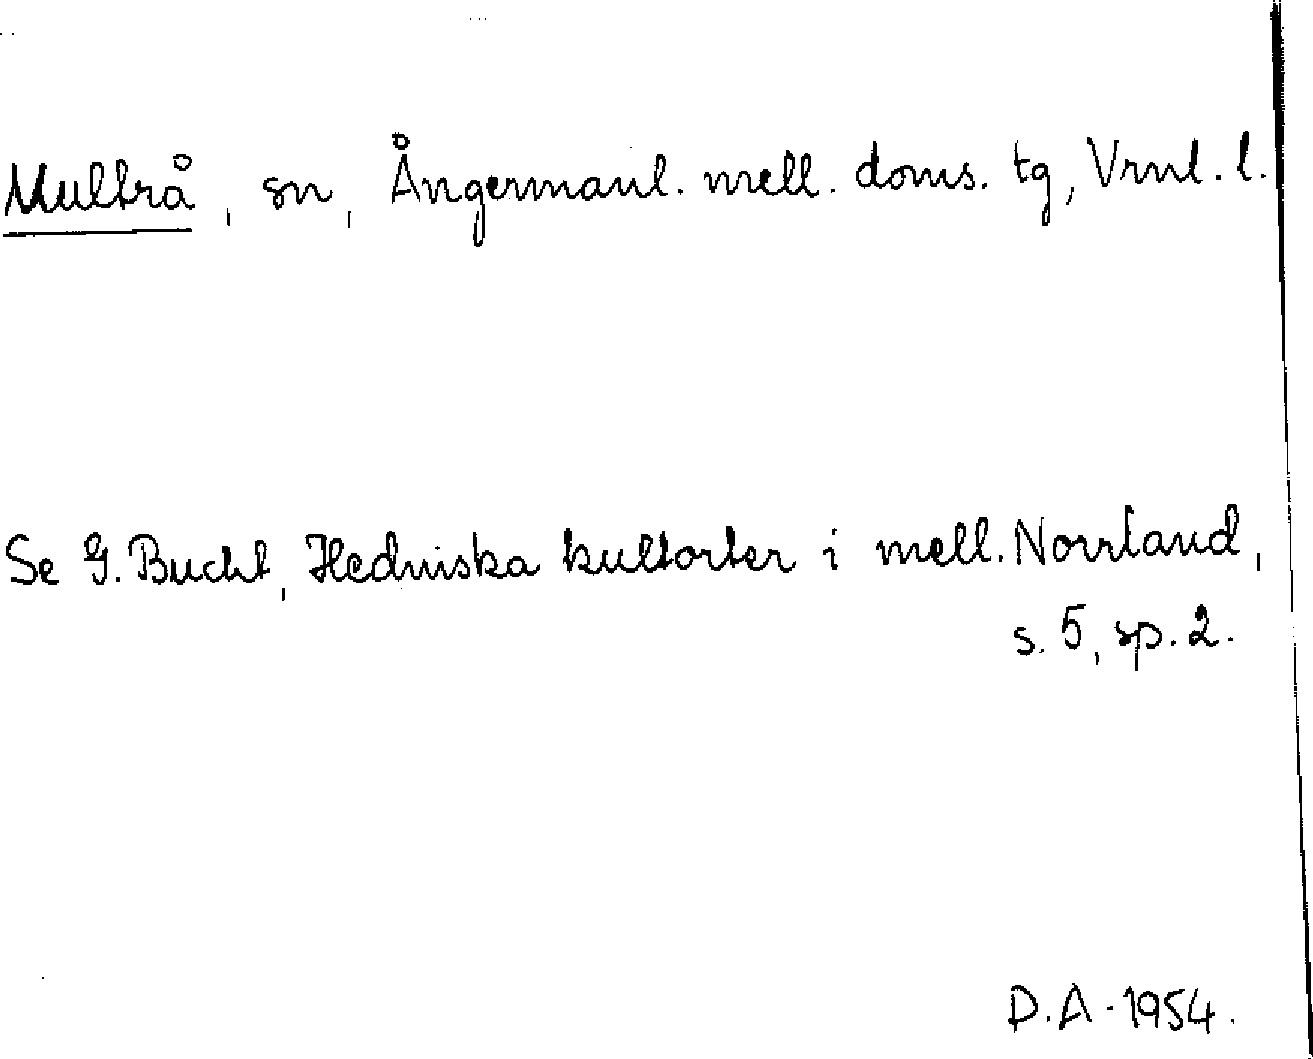 Multrå, sn, Ångermanl. mell. doms. tg, Vrnl. l.
Se G. Bucht, Hedniska kultorter i mell. Norrland,
s. 5, sp. 2.
D.A. 1954.